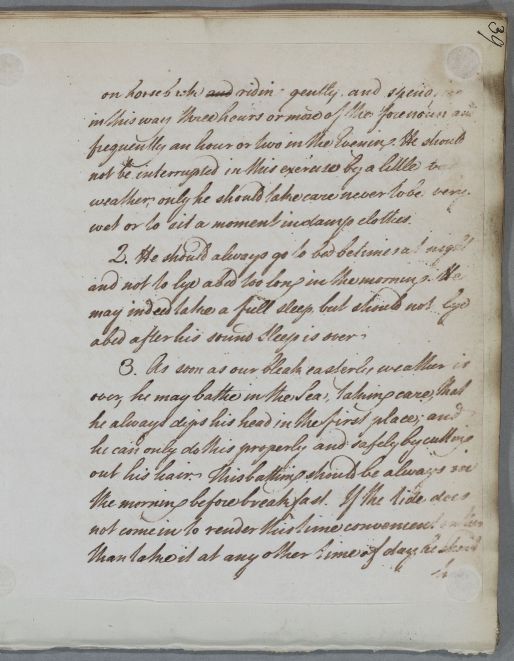 39
on horseback and ridin gently. and spend
in this way three hours or more of the forenoun and
frequently an hour or two in the Evening. He should
not be interrupted in this exercise by a little
weather; only he should take care never to be very
wet or to sit a moment in damp clothes.
2. He should always go to bed betimes at night
and not to lye abed too long in the morning. He
may indeed take a full sleep, but should not lye
abed after his sound sleep is over.
3. As soon as our bleak easterly weather is
over, he may bathe in the Sea, taking care, that
he always dips his head in the first place; and
he can only do this properly and safely by cutting
out his hair. This bathing should be always in
the morning before breakfast. If the tide does
not come in to render this time convenient
than take it at any other time of day, he should